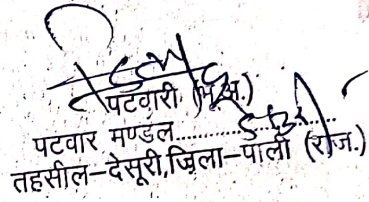 पटवारी (भू.अ.)
पटवार मण्डल....................
तहसील-देसूरी,जिला-पाली (राज.)